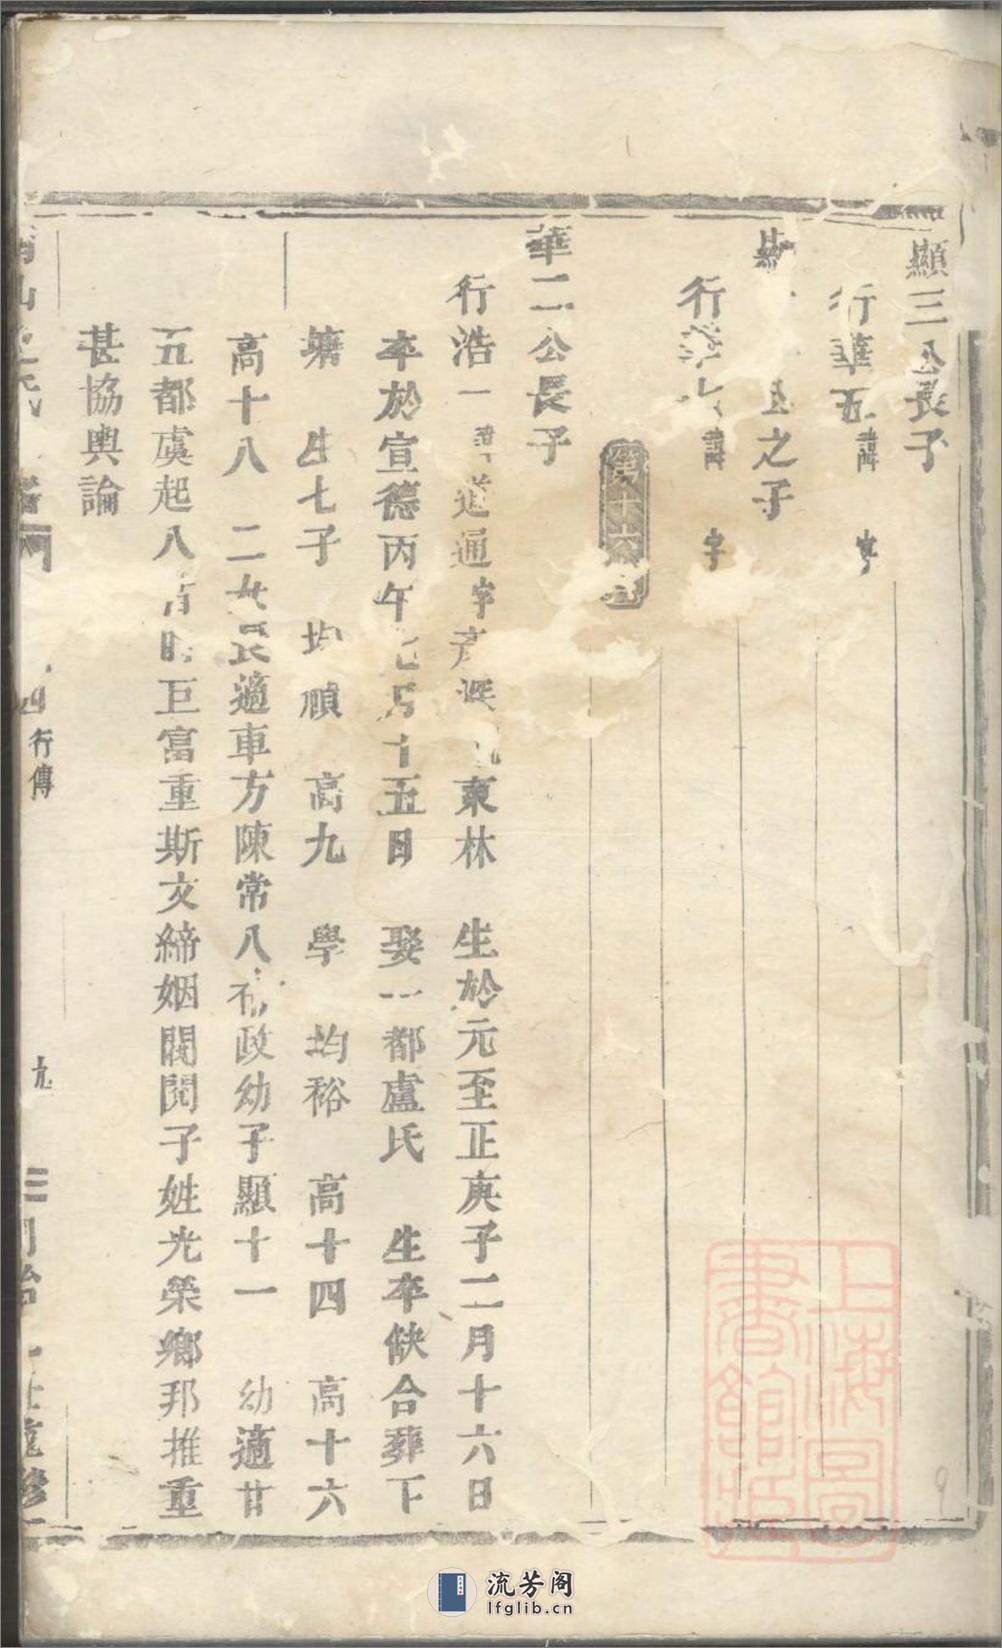 顯三公長子
行華五 諱 字
顯 公之子
行華六 諱 字
第十六世
華二公長子
行浩一 諱道通字彥 號東林 生於元至正庚子二月十六日
卒於宣德丙午七月十五日 娶一都盧氏 生卒缺合葬下
塘 生七子 均順 高九 學 均裕 高十四 高十六
高十八 二女長適車方陳常八 政幼子顯十一 幼適廿
五都虞起八 時巨富重斯文締姻閥閱子姓光榮鄉邦推重
甚協輿論
行傳
九
同治
上海圖書館藏
9
流芳阁
lfglib.cn